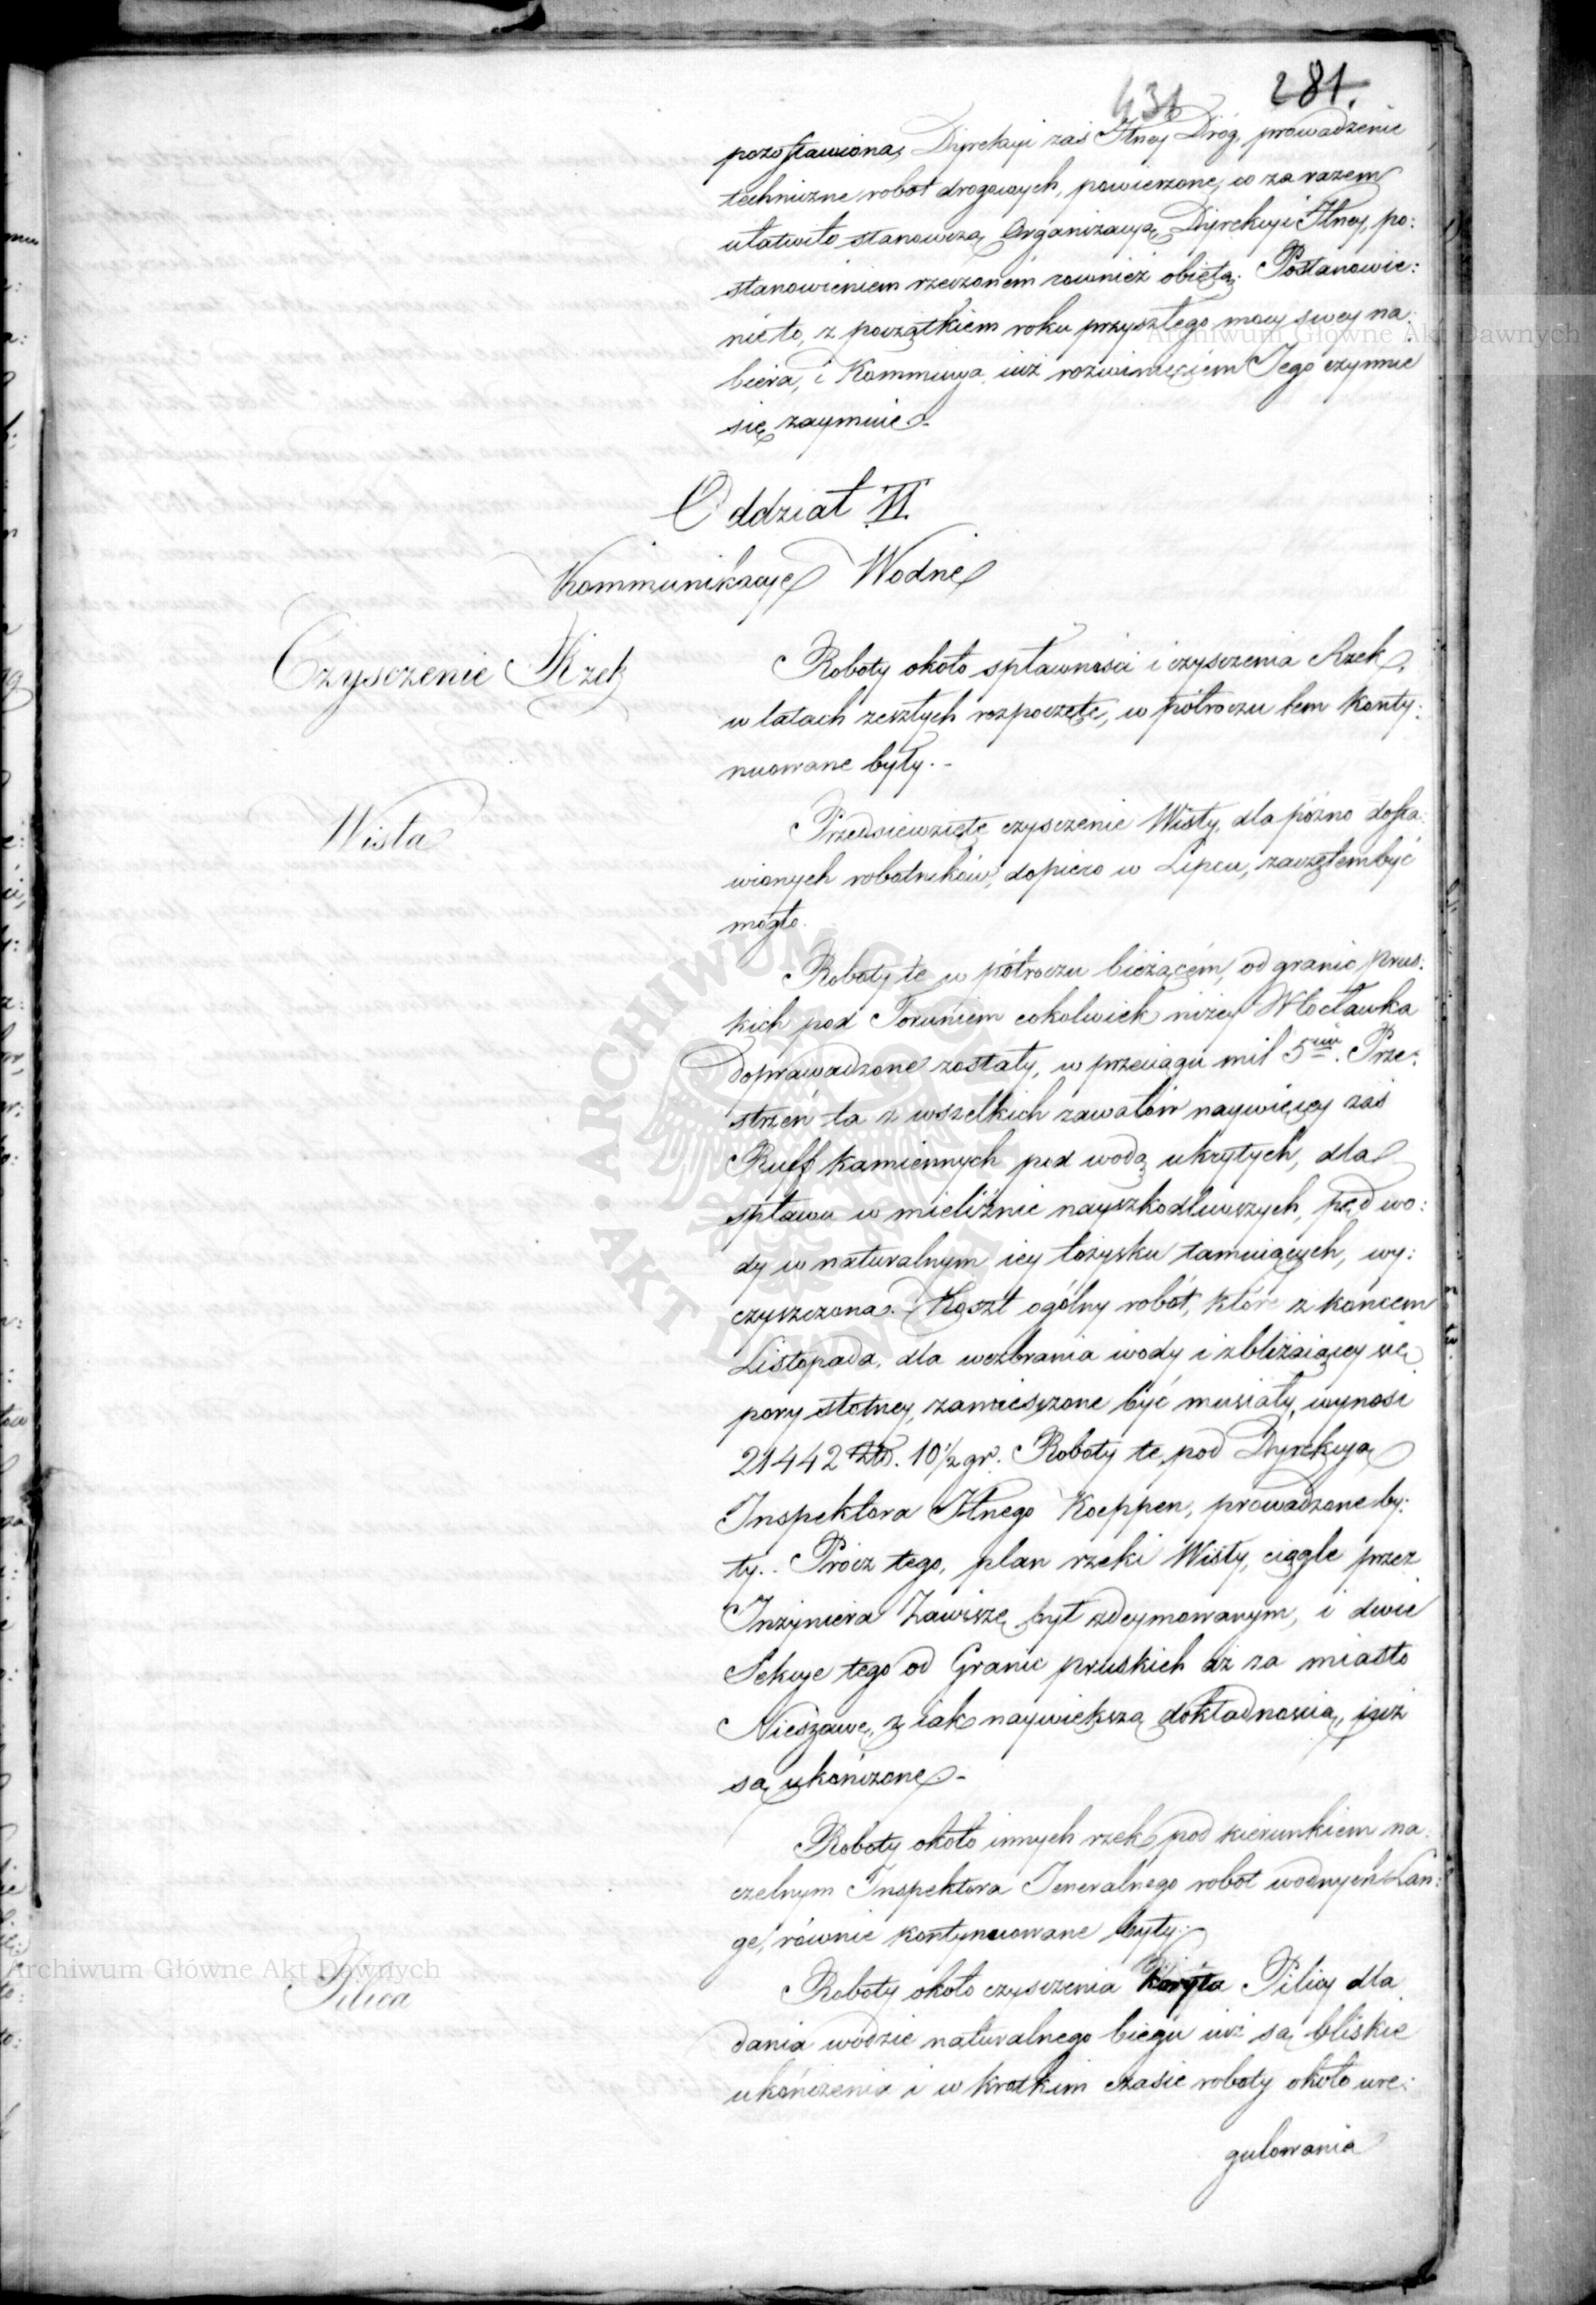 431 281.
pozostawioną, Dyrekcyi zaś Jlney Dróg, prowadzenie
techniczne robot drogowych, powierzone, co za razem
ułatwiło stanowczą Organizacyą Dyrekcyi Jlney, po:
stanowieniem rzeczonem rownież obiętą. Postanowie:
nie to, z początkiem roku przyszłego mocy swey na:
biera, i Kommissya iuż rozwinięciem Jego czynnie
się zaymuie.-
Oddział II.
Kommunikacye Wodne
Czysczenie Rzek
Roboty około spławności i czysczenia Rzek,
w latach zeszłych rozpoczęte, w półroczu tem konty:
nuowane były.-
Wisła
Przedsiewzięte czysczenie Wisły, dla późno dosta:
wionych robotników, dopiero w Lipcu, zaczętem być
mogło.
Roboty te w półroczu bieżącem, od granic Prus:
kich pod Toruniem cokolwiek niżey Włocławka
doprawadzone zostały, w przeciągu mil 5ciu. Prze:
strzeń ta z wszelkich zawałów naywięcey zaś
Ruff kamiennych pod wodą ukrytych, dla
spławu w mieliźnie nayszkodliwszych, pęd wo:
dy w naturalnym iey łożysku tamuiących, wy:
czyszczona. Koszt ogólny robót, które z końcem
Listopada, dla wezbrania wody i zbliżaiącey się
pory słotney, zawieszone być musiały, wynosi
21442 Złp. 10½ gr. Roboty te, pod Dyrekcyą
Inspektora Jlnego Koeppen, prowadzone by:
ły.. Prócz tego, plan rzeki Wisły, ciągle przez
Inżyniera Zawiszę był zdeymowanym, i dwie
Sekcye tego od Granic pruskich aż za miasto
Nieszawę, z iak naywiększą dokładnością, już
są ukończone.-
Roboty około innych rzek pod kierunkiem na:
czelnym Inspektora Jeneralnego robot wodnych Lan:
ge, równie kontynuowane były.-
Pilica
Roboty około czysczenia Koryta Pilicy dla
dania wodzie naturalnego biegu iuż są bliskie
ukończenia i w krotkim czasie roboty około ure:
gulowania
Archiwum Główne Akt Dawnych
Archiwum Główne Akt Dawnych